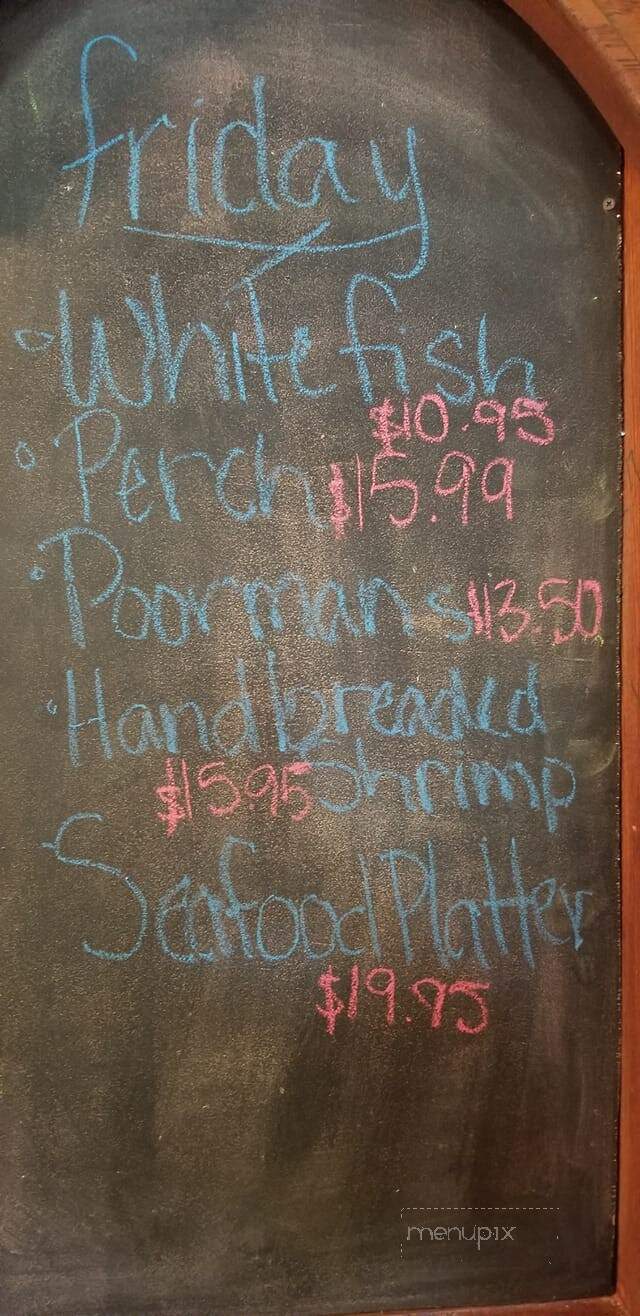 friday
Whitefish
$10.95
Perch $15.99
Poormans $13.50
Hand breaded
$15.95 shrimp
Seafood Platter
$19.95
menupix